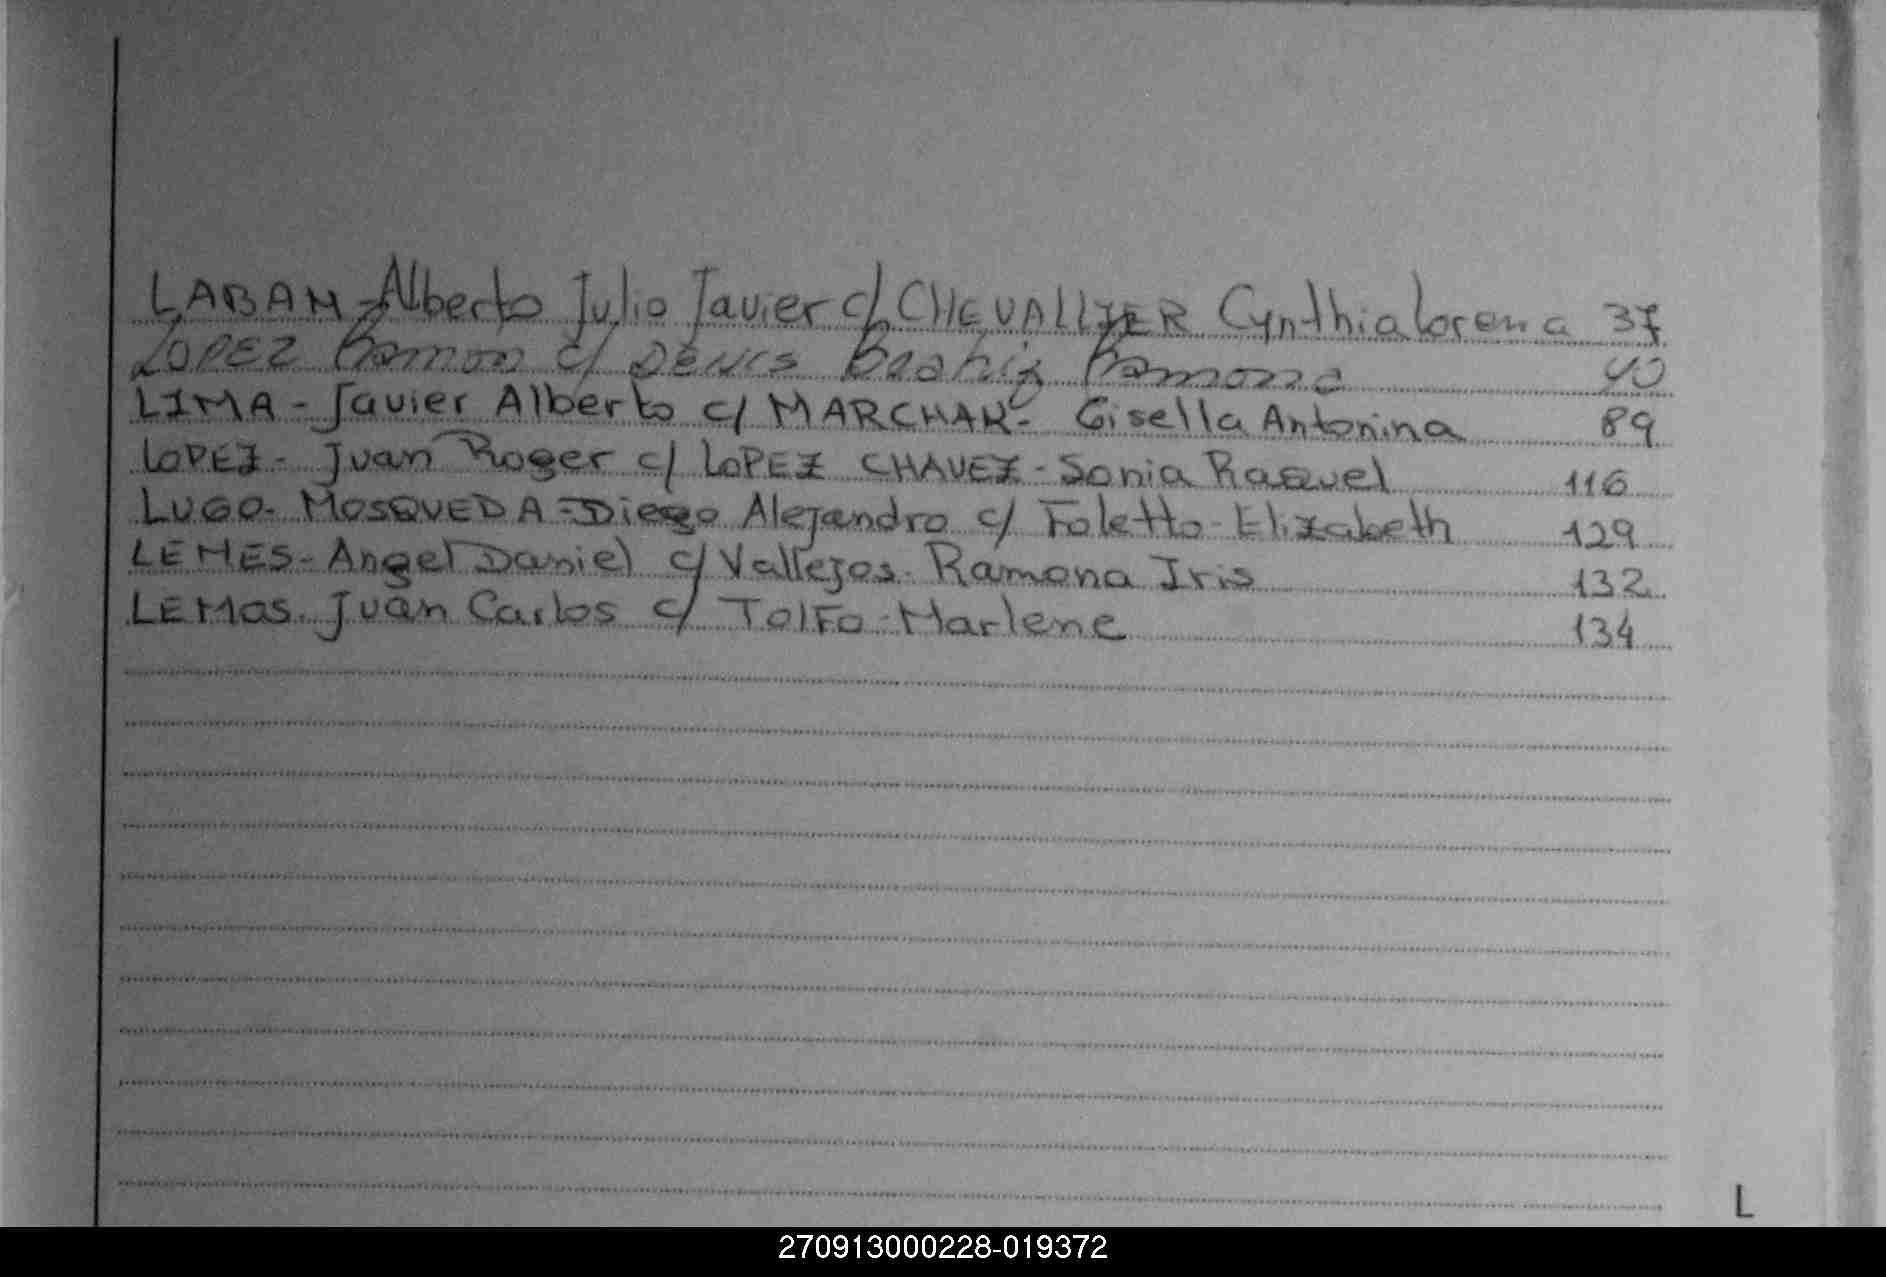 LABAN - Alberto Julio Javier c/ CHEVALLIER Cynthia Lorena 37
LOPEZ Ramon c/ Beatriz Ramona 40
LIMA - Javier Alberto c/ MARCHAK - Gisella Antonina 89
LOPEZ - Juan Roger c/ LOPEZ CHAVEZ - Sonia Raquel 116
LUGO - MOSQUEDA - Diego Alejandro c/ Foletto - Elizabeth 129
LEMES - Angel Daniel c/ Vallejos - Ramona Iris 132
LEMOS. Juan Carlos c/ TOLFO - Marlene 134
L
270913000228-019372